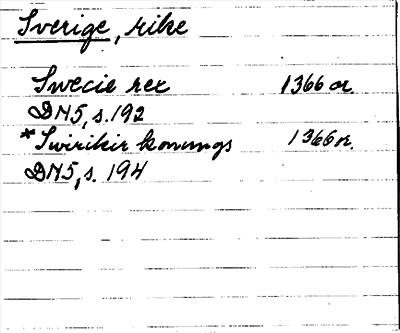 Sverige, rike
Swecie rex 1366 or.
DN5, s. 192
*Swirikir konungs 1366 or.
DN5, s. 194